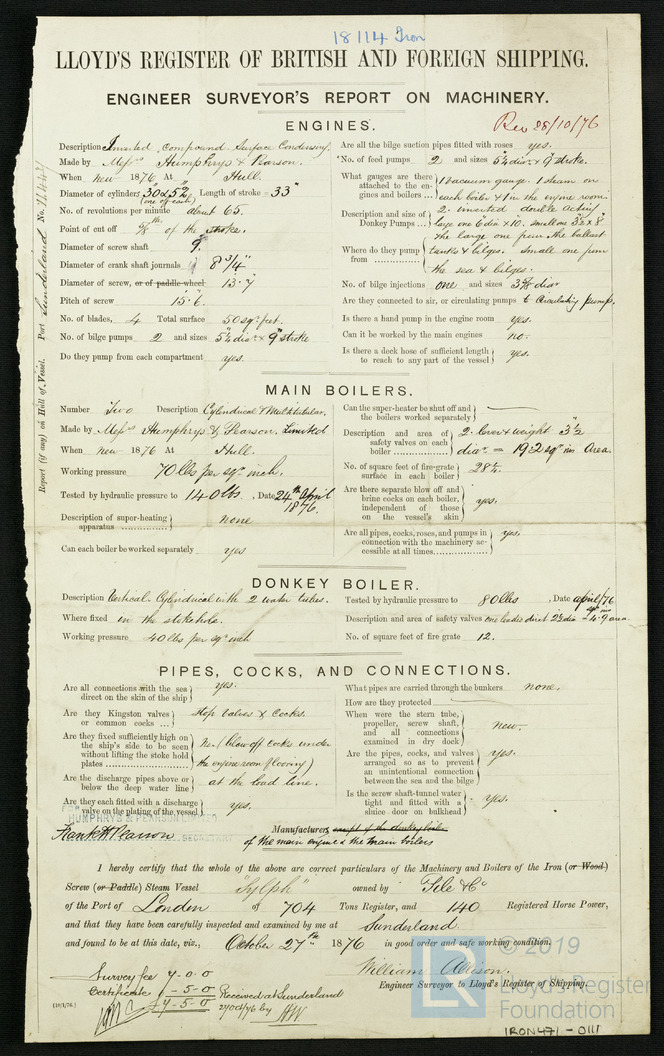 18114 Iron
LLOYD'S REGISTER OF BRITISH AND FOREIGN SHIPPING.
ENGINEER SURVEYOR'S REPORT ON MACHINERY.
Rev 28/10/76
Port Sunderland No.
Report (if any) on Hull of Vessel.
ENGINES.
Description Inverted, Compound Surface Condensing.
Made by Messrs Humphrys & Pearson.
When new 1876 At Hull.
Diameter of cylinders 30 & 52" Length of stroke = 33"
(one off each)
No. of revolutions per minute about 65.
Point of cut off of the stroke.
Diameter of screw shaft 9"
Diameter of crank shaft journals 8 3/4"
Diameter of screw, or of paddle wheel 13.7
Pitch of screw 15.6.
No. of blades, 4 Total surface 50 sq. feet.
No. of bilge pumps 2 and sizes 5 1/2 dia. x 9" stroke
Do they pump from each compartment yes.
Are all the bilge suction pipes fitted with roses yes.
No. of feed pumps 2 and sizes dia. x 9" stroke.
What gauges are there attached to the engines and boilers ...
1 vacuum gauge. 1 steam on each boiler & 1 in the engine room
Description and size of Donkey Pumps ...
2. inverted double acting
large one 6" dia x 10. small one 3 1/2 x 8"
Where do they pump from ...
the large one from the ballast tanks & bilges. Small one from the sea & bilges.
No. of bilge injections one and sizes dia
Are they connected to air, or circulating pumps to Circulating pump.
Is there a hand pump in the engine room yes.
Can it be worked by the main engines no.
Is there a deck hose of sufficient length to reach to any part of the vessel yes.
MAIN BOILERS.
Number Two Description Cylindrical & Multitubular.
Made by Messrs Humphrys & Pearson. Limited
When new 1876 At Hull.
Working pressure 70 lbs per sq. inch.
Tested by hydraulic pressure to 140 lbs. , Date 24th April 1876.
Description of super-heating apparatus ... none
Can each boiler be worked separately yes
Can the super-heater be shut off and the boilers worked separately
Description and area of safety valves on each boiler ...
2. lever & weight 3 1/2 dia. = 19.2 sq. ins Area.
No. of square feet of fire-grate surface in each boiler 28 1/2.
Are there separate blow off and brine cocks on each boiler, independent of those on the vessel's skin yes.
Are all pipes, cocks, roses, and pumps in connection with the machinery accessible at all times yes.
DONKEY BOILER.
Description Vertical. Cylindrical with 2 water tubes. Tested by hydraulic pressure to 80 lbs , Date april/76
Where fixed in the stokehole. Description and area of safety valves one direct 2 1/2 dia = 4.9 area
Working pressure 40 lbs per sq. inch No. of square feet of fire grate 12.
PIPES, COCKS, AND CONNECTIONS.
Are all connections with the sea direct on the skin of the ship yes.
Are they Kingston valves or common cocks ... Stop Valves & Cocks.
Are they fixed sufficiently high on the ship's side to be seen without lifting the stoke hold plates ...
No. (blow off cocks under the engine room flooring)
Are the discharge pipes above or below the deep water line at the load line.
Are they each fitted with a discharge valve on the plating of the vessel yes.
What pipes are carried through the bunkers none.
How are they protected
When were the stern tube, propeller, screw shaft, and all connections examined in dry dock new.
Are the pipes, cocks, and valves arranged so as to prevent an unintentional connection between the sea and the bilge yes.
Is the screw shaft-tunnel water tight and fitted with a sluice door on bulkhead yes.
HUMPHRYS & PEARSON LIMITED
Frank H Pearson SECRETARY Manufacturers except of the donkey boiler
of the main engines & the main boilers
I hereby certify that the whole of the above are correct particulars of the Machinery and Boilers of the Iron (or Wood)
Screw (or Paddle) Steam Vessel "Sylph" owned by Tele & Co
of the Port of London of 704 Tons Register, and 140 Registered Horse Power,
and that they have been carefully inspected and examined by me at Sunderland
and found to be at this date, viz., October 27th 1876 in good order and safe working condition.
William Allison.
Engineer Surveyor to Lloyd's Register of Shipping.
Survey fee 7-0-0
Certificate -5-0
7-5-0
Received at Sunderland
27 Oct/76 by AW
(10/1/76.)
© 2019
LR Lloyd's Register
Foundation
IRON471-0111